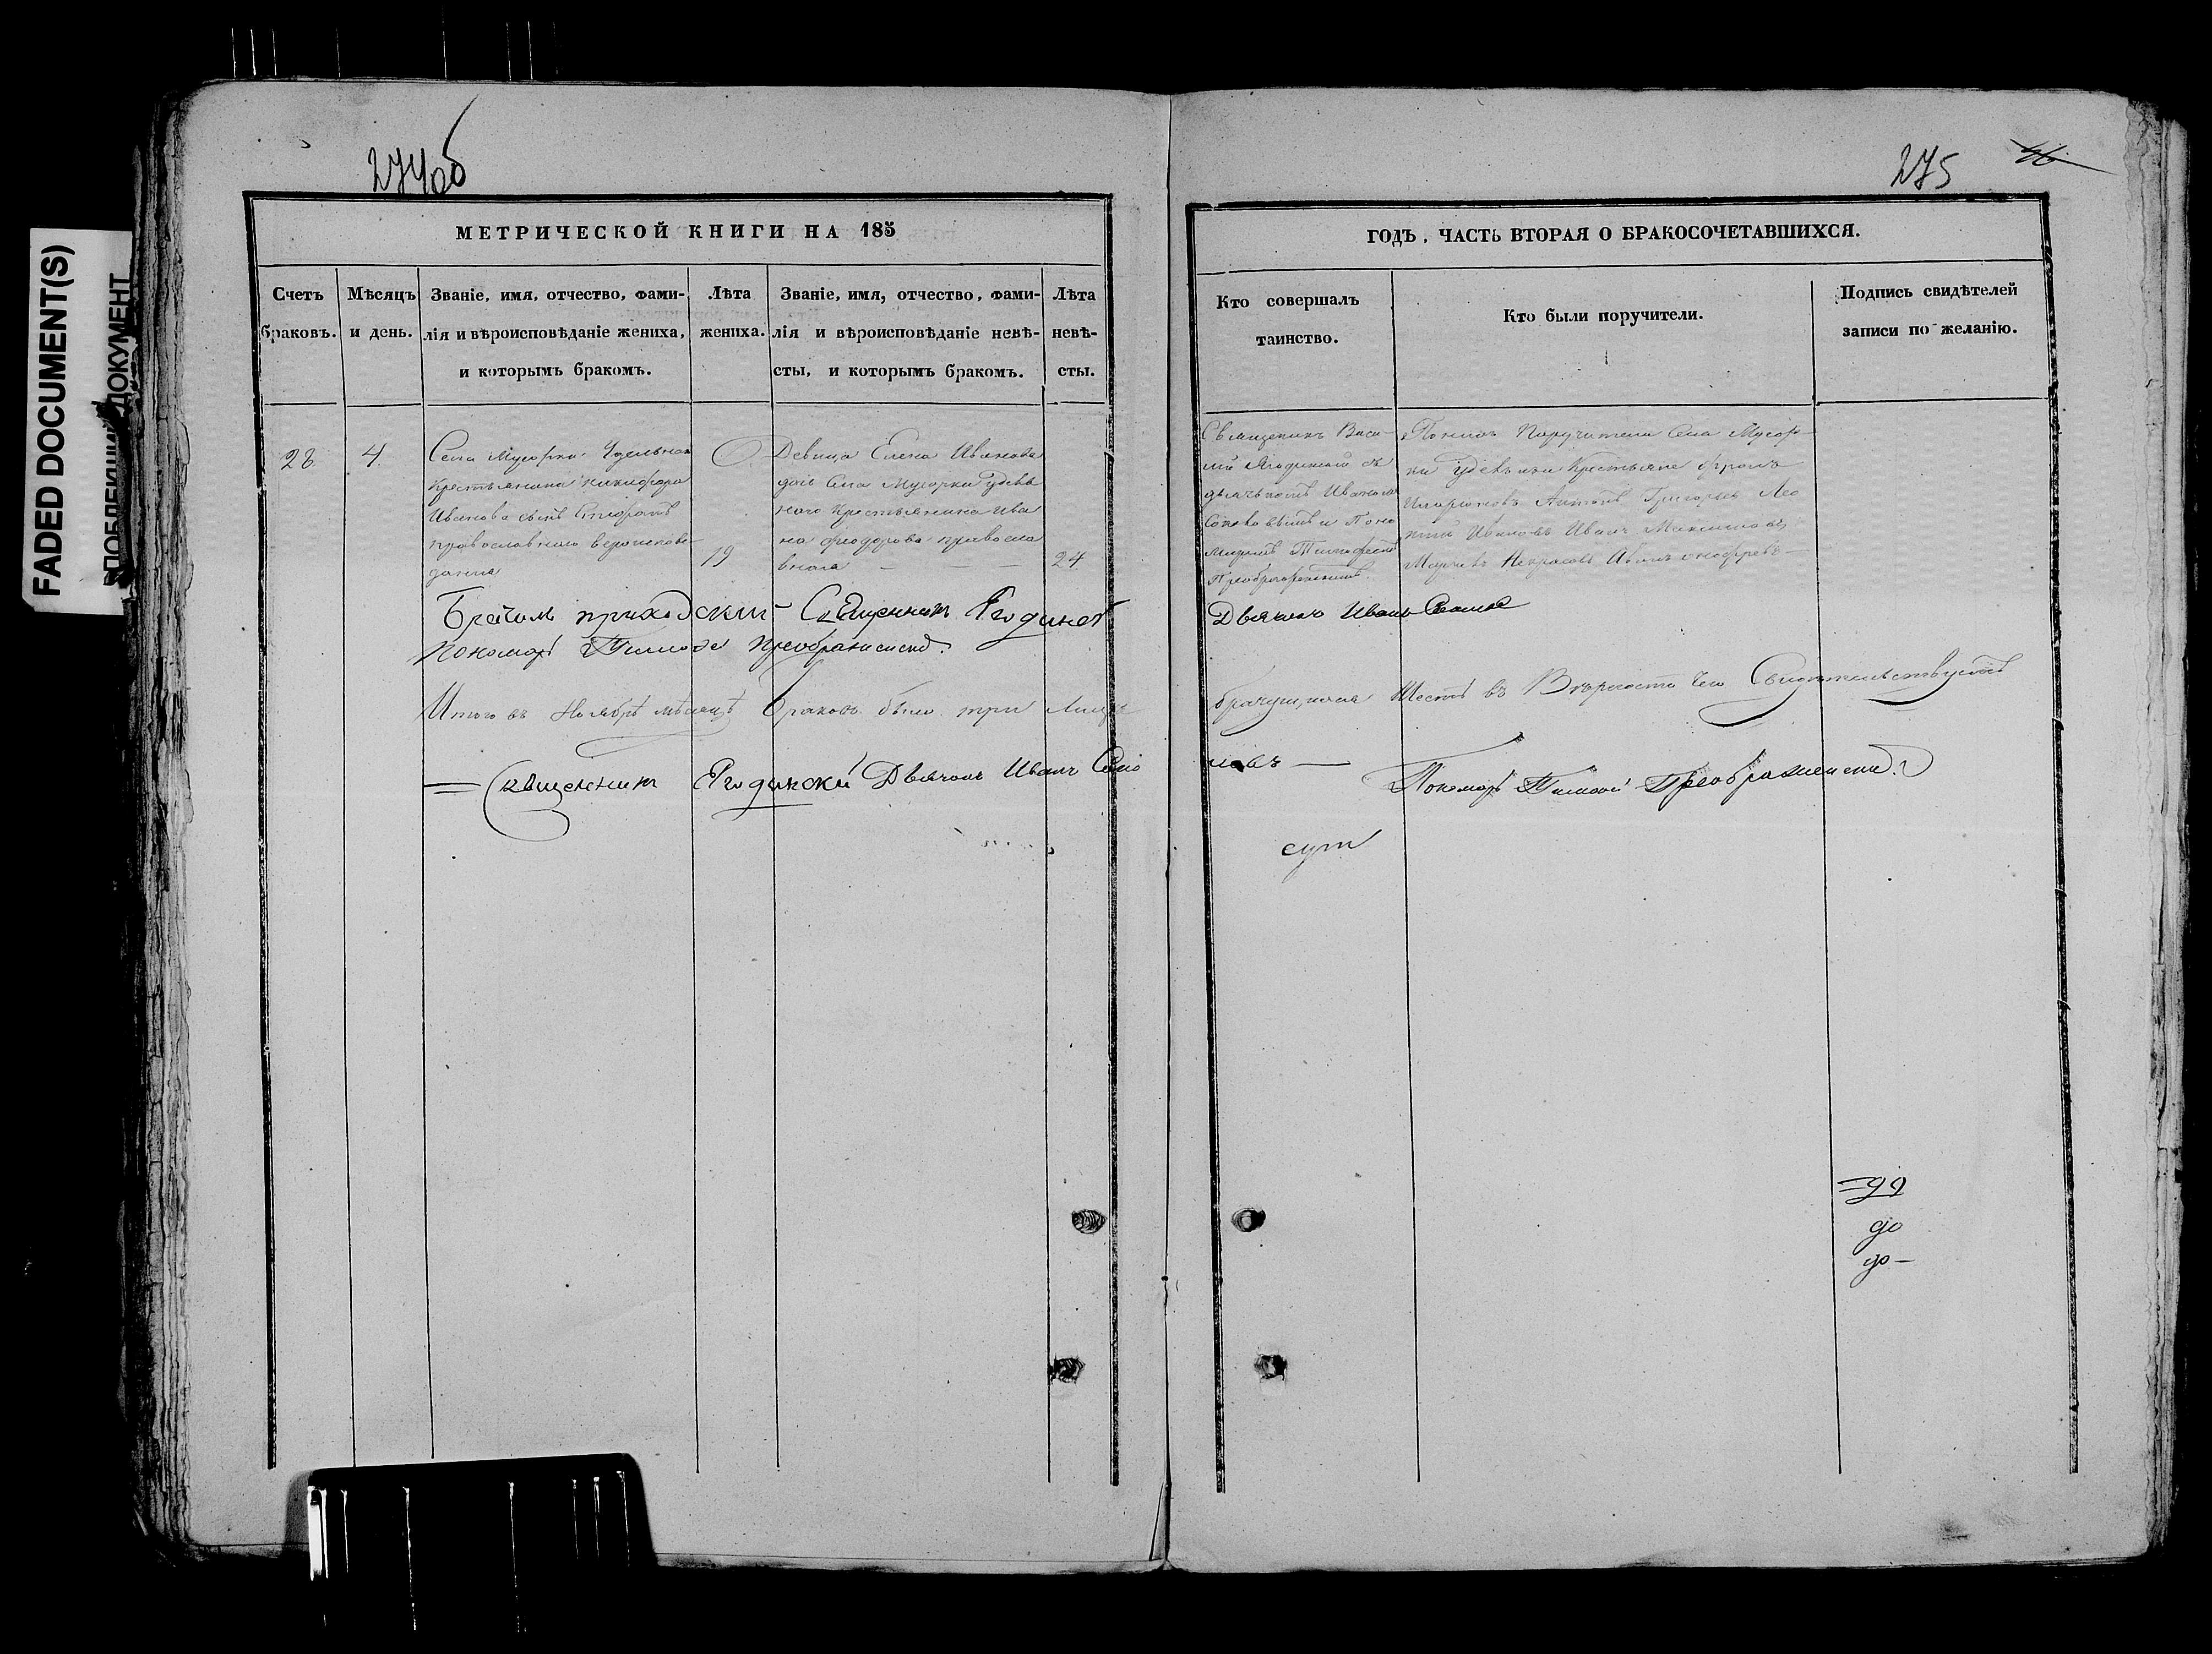 FADED DOCUMENT(S)
ДОКУМЕНТ
274об
МЕТРИЧЕСКОЙ КНИГИ НА 185
Счетъ браковъ.
Мѣсяцъ и день.
Званіе, имя, отчество, фами-
лія и вѣроисповѣданіе жениха,
и которымъ бракомъ.
Лѣта
жениха.
Званіе, имя, отчество, фами-
лія и вѣроисповѣданіе невѣ-
сты, и которымъ бракомъ.
Лѣта
невѣ-
сты.
28
4
Села Мусорки Удельнаго
Крестьянина Никифора
Иванова сынъ
православнаго вероиспове-
дания
19
Девица Елена Иванова
дочь Села Мусорки удель
наго Крестьянина Ива
на Феодорова православ
внаго
24
приходский Священникъ Ягодинск
Пономарь Тимофей Преображенск
Итого въ Ноябрѣ мѣсяцѣ браковъ было три Лицъ
Священникъ Ягодинский Дьячокъ Иванъ Соко
275
46
ГОДЪ, ЧАСТЬ ВТОРАЯ О БРАКОСОЧЕТАВШИХСЯ.
Кто совершалъ
таинство.
Кто были поручители.
Подпись свидѣтелей
записи по желанію.
Священникъ Васи-
лий Ягодинский съ
дьячькомъ Иваномъ
Соколовымъ и Поно
маремъ Тимофеемъ
Преображенскимъ.
Поручители Села Мусор-
ки Удельныи Крестьяне Фролъ
Иларионовъ Антонъ Григорьев Лео
нтий Ивановъ Иванъ Максимовъ
Некрасовъ Иванъ Онофревъ
Дьячокъ Иванъ Соколов
брачущихся Шесть въ Верности чего Свидетельствуемъ
ловъ
Пономарь Тимофей Преображенский
сут